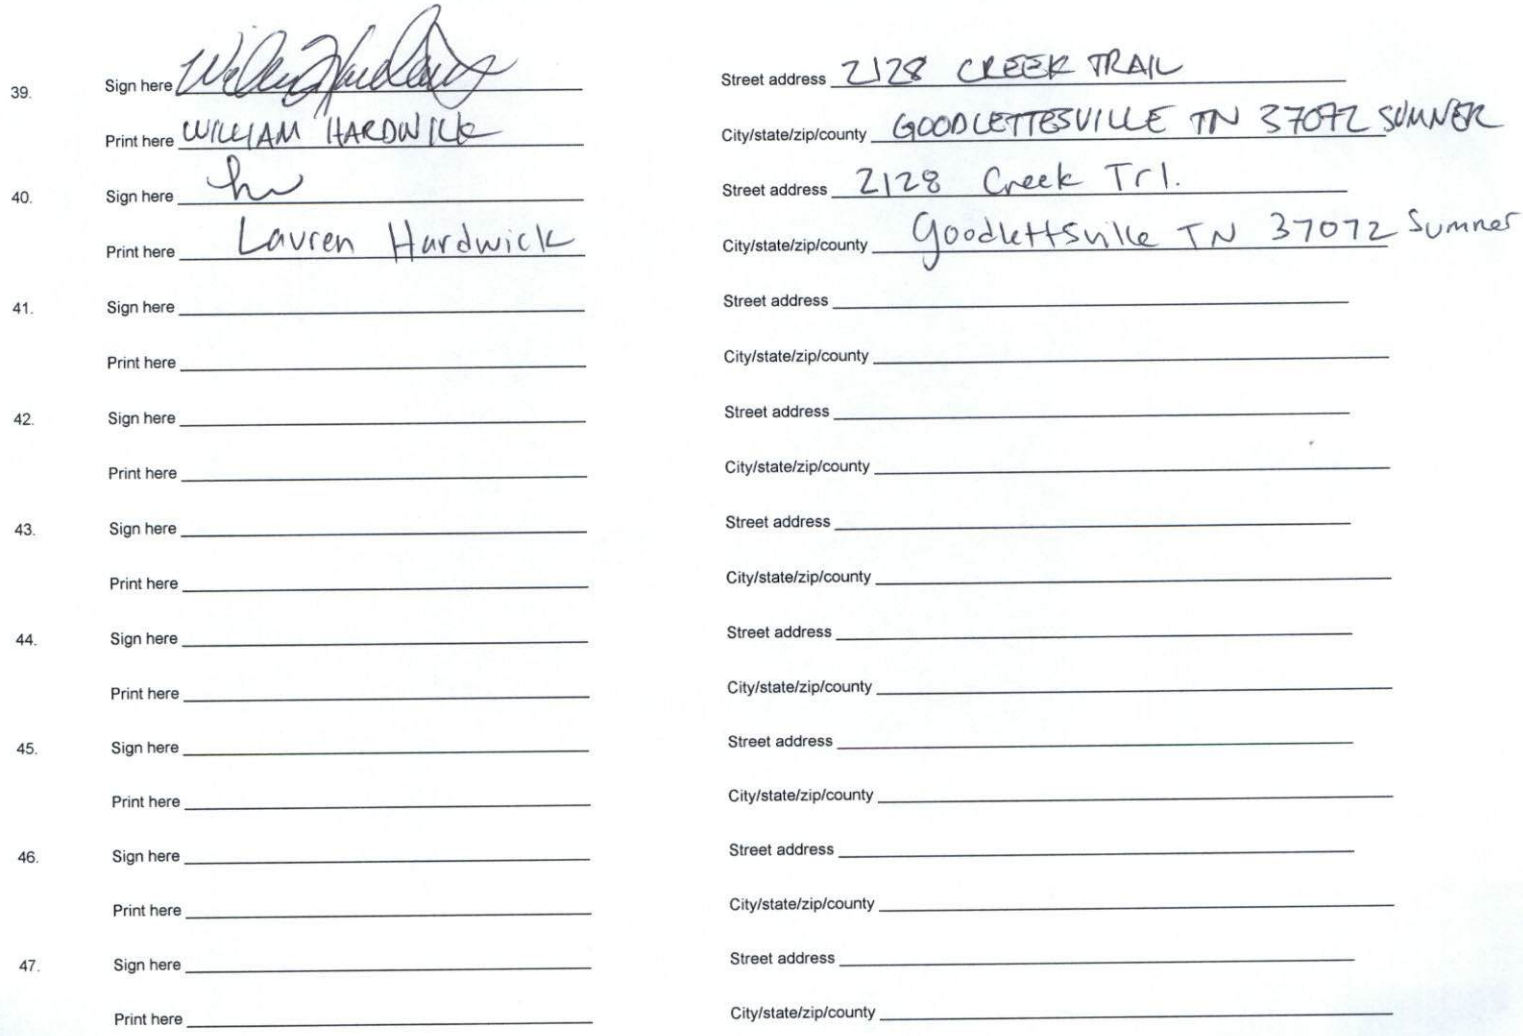 39. Sign here William Hardwick Street address 2128 CREEK TRAIL
Print here WILLIAM HARDWICK City/state/zip/county GOODLETTESVILLE TN 37072 SUMNER
40. Sign here Street address 2128 Creek Trl.
Print here Lauren Hardwick City/state/zip/county Goodlettsville TN 37072 Sumner
41. Sign here Street address
Print here City/state/zip/county
42. Sign here Street address
Print here City/state/zip/county
43. Sign here Street address
Print here City/state/zip/county
44. Sign here Street address
Print here City/state/zip/county
45. Sign here Street address
Print here City/state/zip/county
46. Sign here Street address
Print here City/state/zip/county
47. Sign here Street address
Print here City/state/zip/county